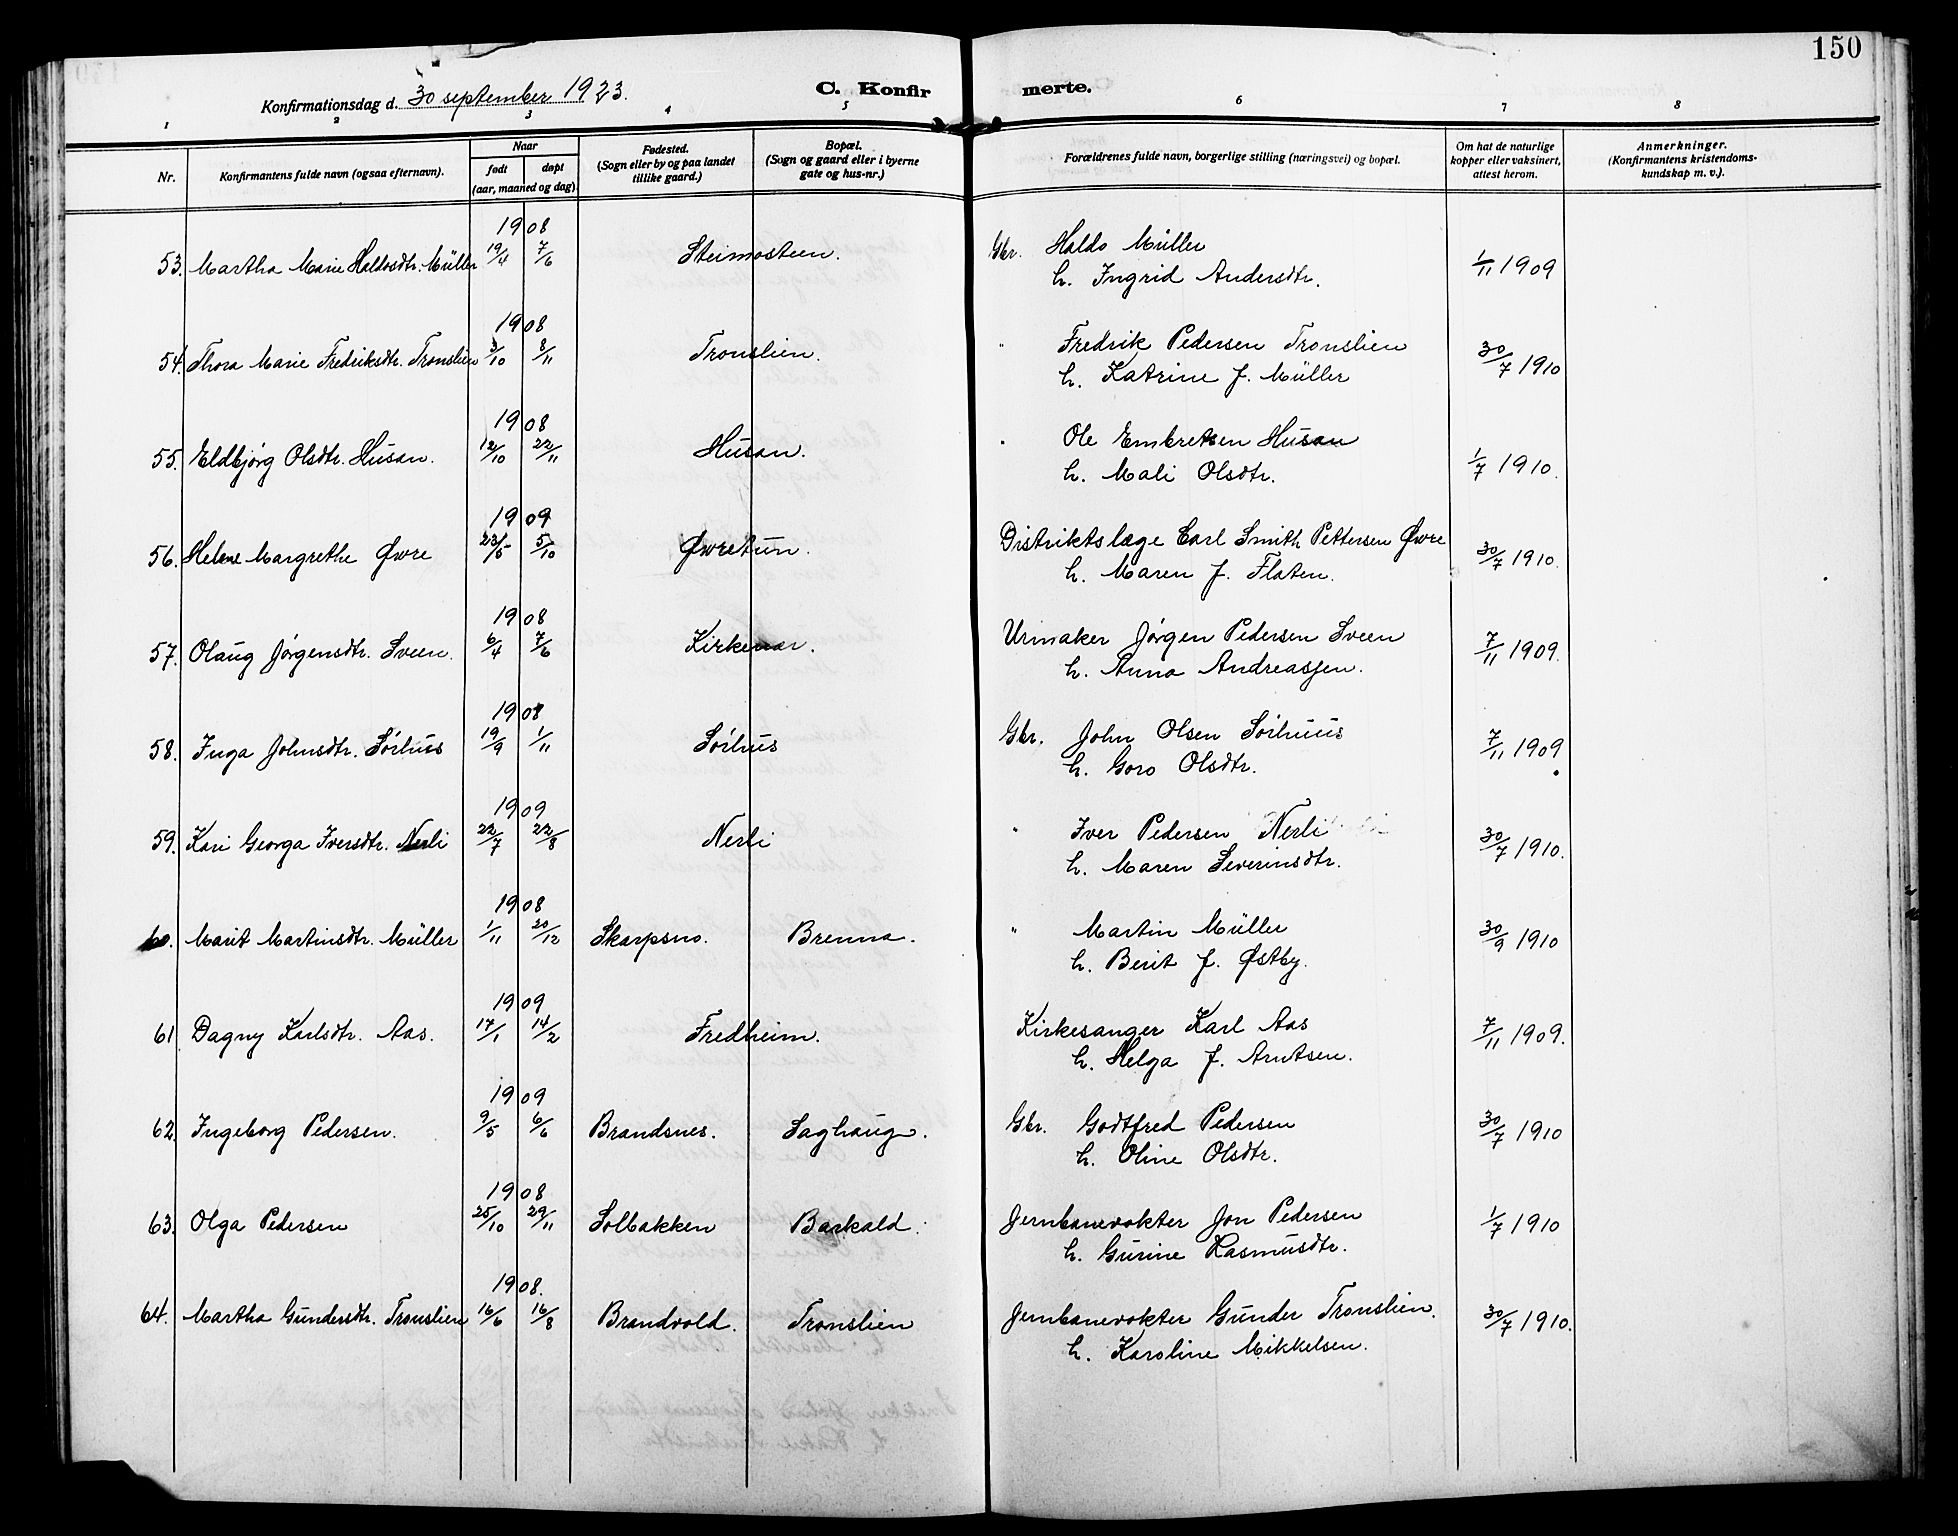 150
Konfirmationsdag d. 30 september 1923.
C. Konfirmerte.
1 2 3 4 5 6 7 8
Nr.
Konfirmantens fulde navn (ogsaa efternavn).
Naar
født døpt
(aar, maaned og dag)
Fødested.
(Sogn eller by og paa landet
tillike gaard.)
Bopæl.
(Sogn og gaard eller i byerne
gate og hus-nr.)
Forældrenes fulde navn, borgerlige stilling (næringsvei) og bopæl.
Om hat de naturlige
kopper eller vaksinert,
attest herom.
Anmerkninger.
(Konfirmantens kristendoms-
kundskap m. v.).
1908
53. Martha Marie Haldosdtr. Müller 19/4 7/6 Steimosteen. Gbr. Haldo Müller 1/11 1909
h. Ingrid Andersdtr.
1908
54. Thora Marie Fredriksdtr. Tronslien 3/10 8/11 Tronslien. " Fredrik Pedersen Tronslien 30/7 1910
h. Katrine f. Müller
1908
55. Eldbjørg Olsdtr. Husan. 12/10 22/11 Husan. " Ole Embretsen Husan 1/7 1910.
h. Mali Olsdtr.
1909
56. Helene Margrethe Øvre 23/5 5/10 Øvretun. Distriktslæge Carl Smith Pettersen Øvre 30/7 1910.
h. Maren f. Flaten.
1908
57. Olaug Jørgensdtr. Sveen. 6/4 7/6 Kirkemor. Urmaker Jørgen Pedersen Sveen 7/11 1909.
h. Anna Andreassen.
1908
58. Inga Johnsdtr. Sørhus 19/9 1/11 Sørhus Gbr. John Olsen Sørhuus 7/11 1909
h. Goro Olsdtr.
1909
59. Kari Georga Iversdtr. Nerli 22/7 22/8 Nerli " Iver Pedersen Nerli 30/7 1910.
h. Maren Severinsdtr.
1908
60. Marit Martinsdtr. Müller 1/11 20/12 Skarpsno. Brenna. " Martin Müller 30/9 1910
h. Berit f. Østby.
1909
61 Dagny Karlsdtr. Aas. 17/1 14/2 Fredheim. Kirkesanger Karl Aas 7/11 1909.
h. Helga f. Arntsen.
1909
62. Ingeborg Pedersen. 9/5 6/6 Brandsnes. Saghaug. Gbr. Godtfred Pedersen 30/7 1910
h. Oline Olsdtr.
1908
63. Olga Pedersen 25/10 29/11 Solbakken Barkald. Jernbanevokter Jon Pedersen 1/7 1910
h. Gurine Rasmusdtr.
1908.
64. Martha Gundersdtr. Tronslien 16/6 16/8 Brandvold. Tronslien Jernbanevokter Gunder Tronslien. 30/7 1910.
h. Karoline Mikkelsen.